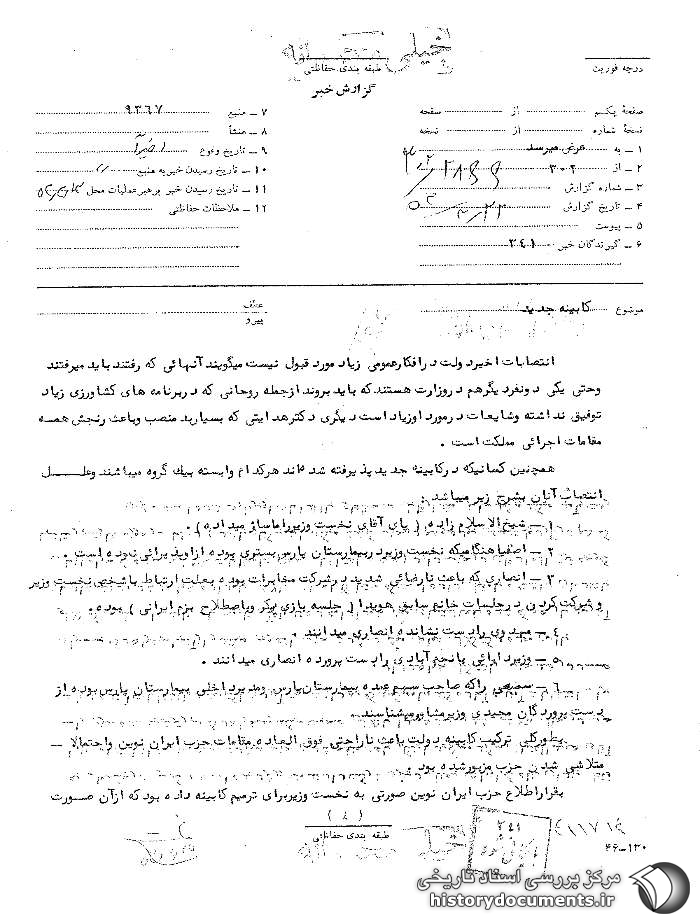 خیلی محرمانه
طبقه بندی حفاظتی
درجه فوریت
گزارش خبر
صفحهٔ یکم از صفحه
نسخهٔ شماره از نسخه
۱ ـ به عرض میرسد
۲ ـ از ۳۰۲
۳ ـ شماره گزارش
۴ ـ تاریخ گزارش
۵ ـ پیوست
۶ ـ گیرندگان خبر ۳۴۱
۷ ـ منبع ۹۳۶۷
۸ ـ منشأ
۹ ـ تاریخ وقوع اخیراً
۱۰ ـ تاریخ رسیدن خبر به منبع
۱۱ ـ تاریخ رسیدن خبر برهبر عملیات محل
۱۲ ـ ملاحظات حفاظتی
موضوع کابینه جدید
عطف
پیرو
انتصابات اخیر دولت در افکار عمومی زیاد مورد قبول نیست میگویند آنهائی که رفتند باید میرفتند
وحتی یکی دونفر دیگر هم در وزارت هستند که باید بروند ازجمله روحانی که در برنامه های کشاورزی زیاد
توفیق نداشته وشایعات در مورد اوزیاد است دیگری دکتر هدایتی که بسیار بد منصب وباعث رنجش همه
مقامات اجرائی مملکت است .
همچنین کسانیکه در کابینه جدید پذیرفته شده اند هرکدام وابسته بیک گروه میباشند وعلل
انتصاب آنان بشرح زیر میباشد :
۱ ـ شیخ الاسلام زاده ( پای آقای نخست وزیر را ماساژ میداده ) .
۲ ـ اصفیا هنگامیکه نخست وزیر در بیمارستان پارس بستری بوده ازاو پذیرائی نموده است .
۳ ـ انصاری که باعث نارضائی شدید در شرکت مخابرات بوده بعلت ارتباط با شخص نخست وزیر
و شرکت کردن در جلسات خانم سابق هویدا ( جلسه بازی پوکر وباصطلاح بزم ایرانی ) بوده .
۴ ـ مهدوی را دست نشانده انصاری میدانند .
۵ ـ وزیر دارائی یا نجم آبادی را دست پرورده انصاری میدانند .
۶ ـ سمیعی راکه صاحب سهم عمده بیمارستان پارس ومدیر داخلی بیمارستان پارس بوده از
دست پروردگان مجیدی وزیر مشاور میشناسند .
بطور کلی ترکیب کابینه دولت باعث ناراحتی فوق العاده مقامات حزب ایران نوین واحتمالا ـ
متلاشی شدن حزب مزبور شده بود .
بقرار اطلاع حزب ایران نوین صورتی به نخست وزیر برای ترمیم کابینه داده بود که ازآن صورت
طبقه بندی حفاظتی
خیلی محرمانه
۳۴۱
بایگانی شود
۴۶-۱۳۰
مرکز بررسی اسناد تاریخی
historydocuments.ir